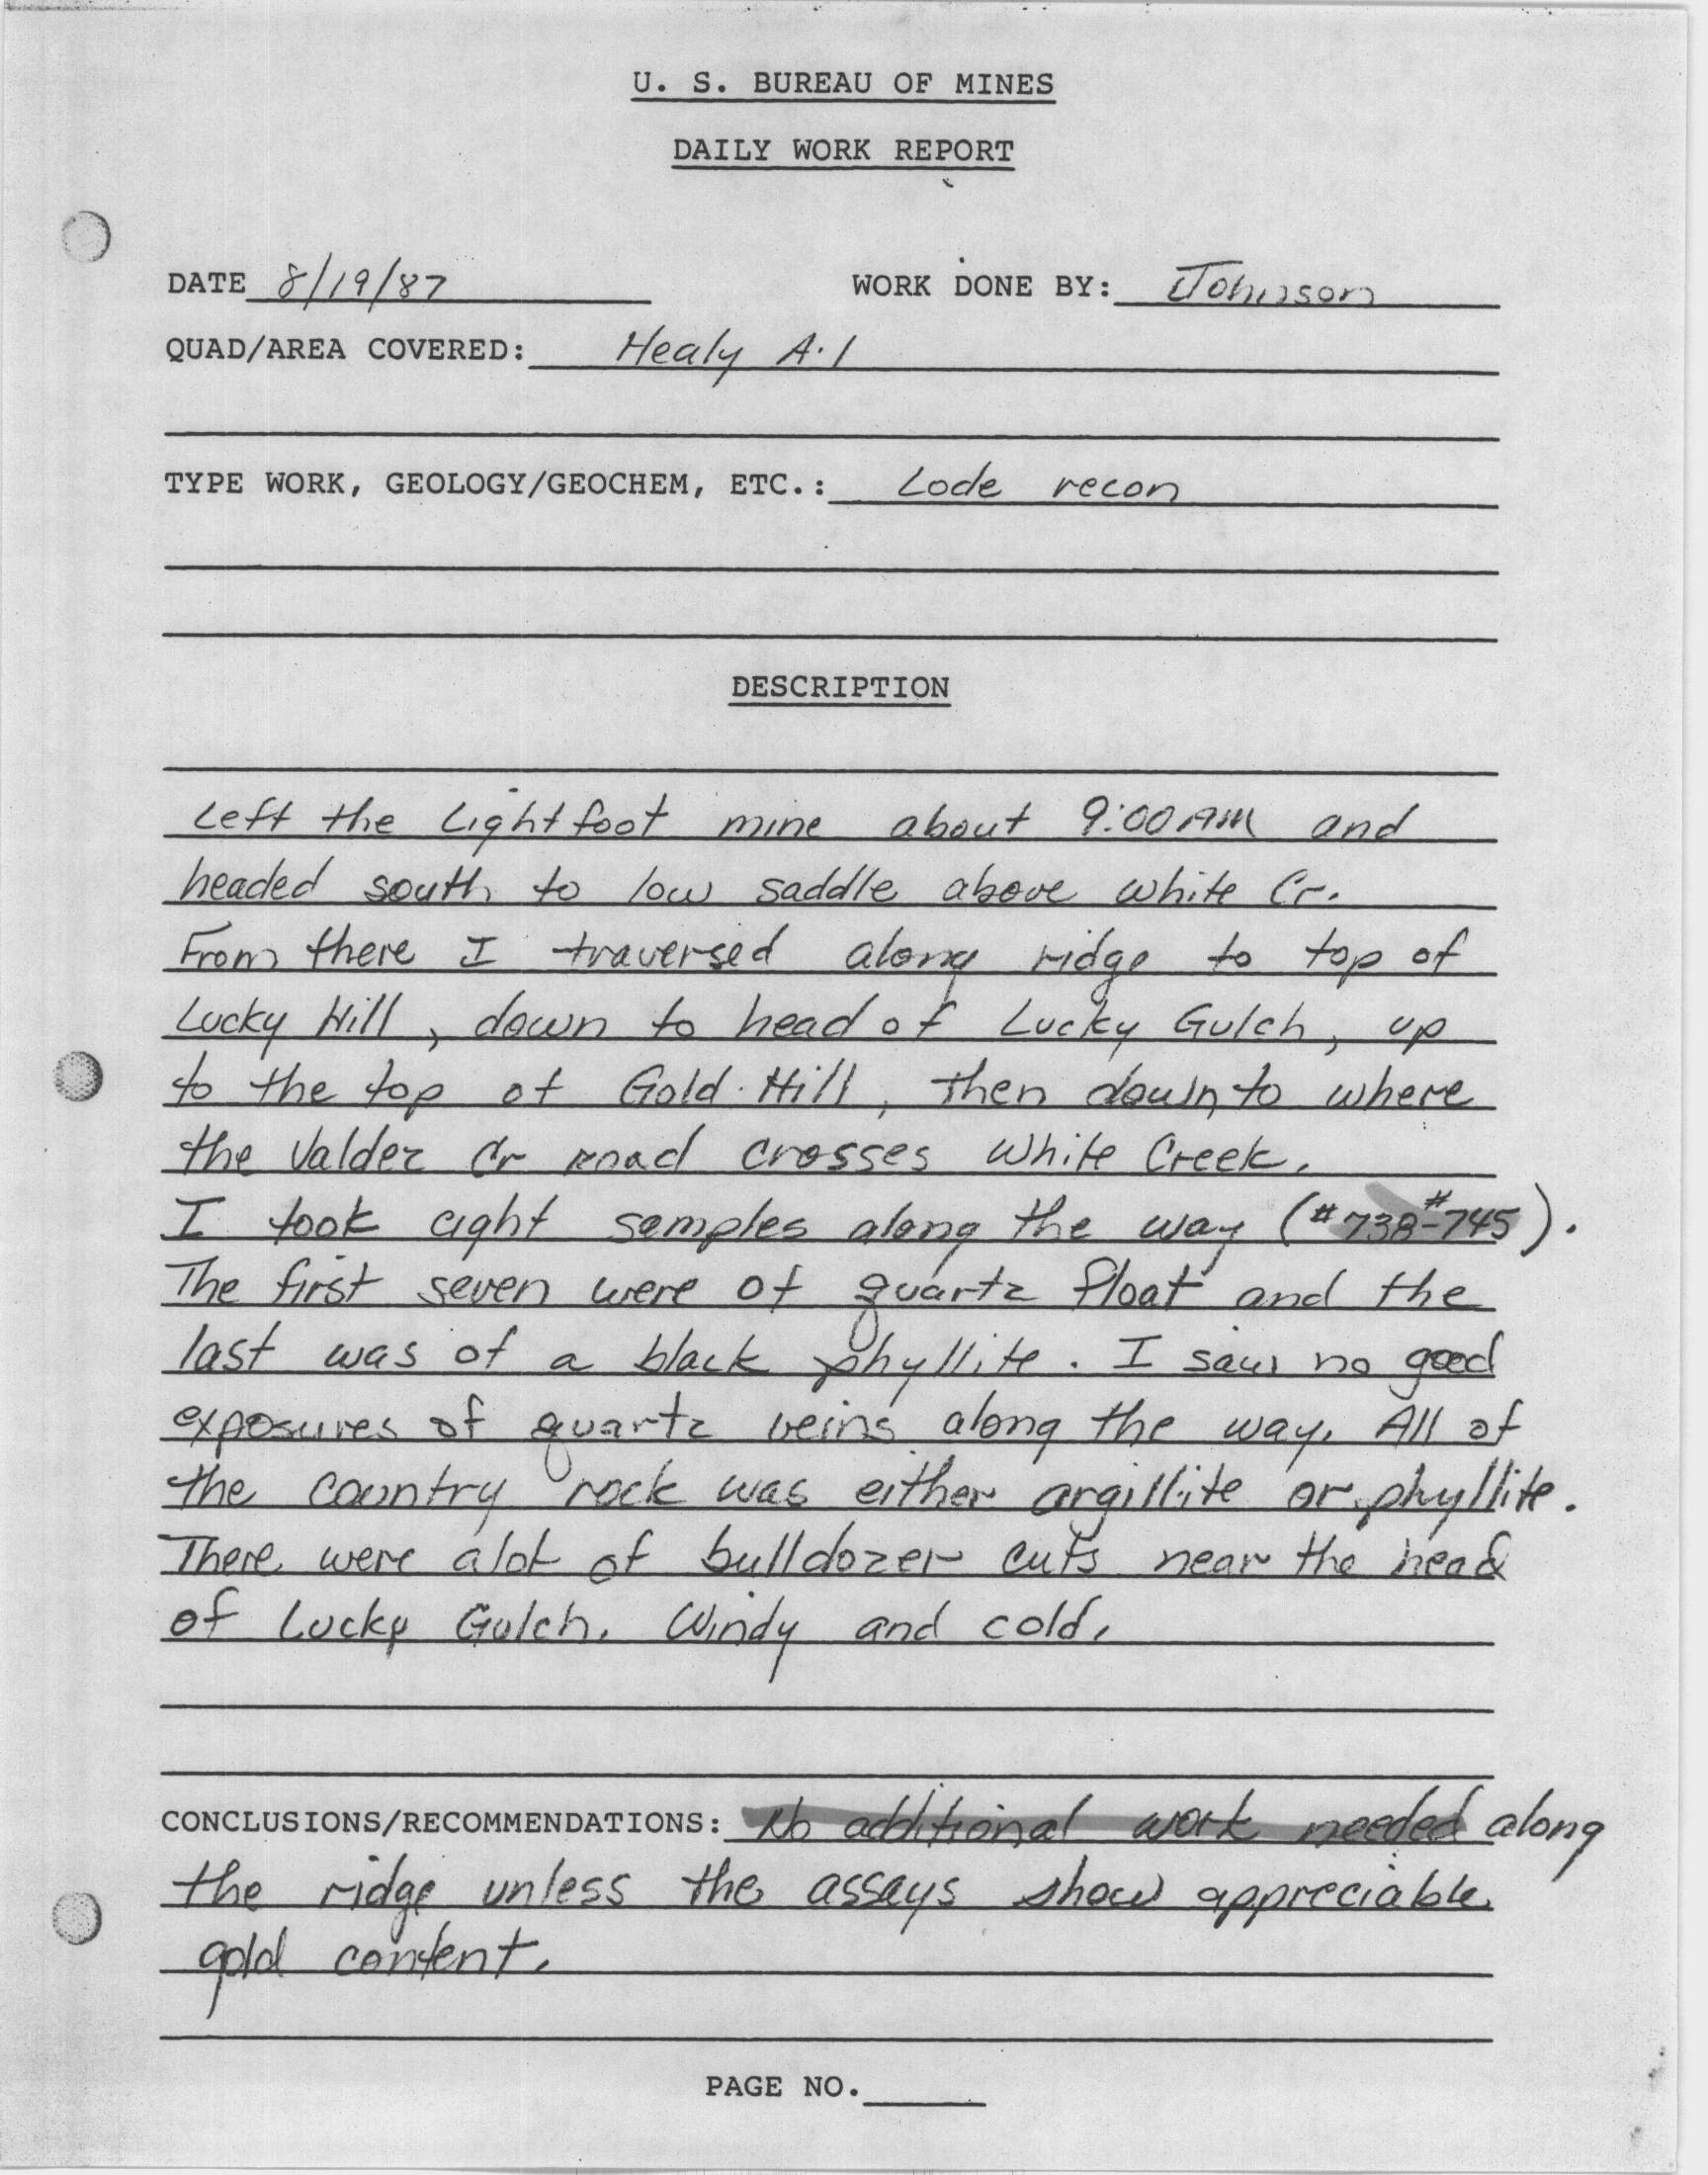 U. S. BUREAU OF MINES
DAILY WORK REPORT
DATE 8/19/87 WORK DONE BY: Johnson
QUAD/AREA COVERED: Healy A-1
TYPE WORK, GEOLOGY/GEOCHEM, ETC.: Lode recon
DESCRIPTION
Left the Lightfoot mine about 9:00 AM and
headed south to low saddle above White Cr.
From there I traversed along ridge to top of
Lucky Hill, down to head of Lucky Gulch, up
to the top of Gold Hill, then down to where
the Valdez Cr road crosses White Creek.
I took eight samples along the way (#738-#745).
The first seven were of quartz float and the
last was of a black phyllite. I saw no good
exposures of quartz veins along the way. All of
the country rock was either argillite or phyllite.
There were alot of bulldozer cuts near the head
of Lucky Gulch. Windy and cold.
CONCLUSIONS/RECOMMENDATIONS: No additional work needed along
the ridge unless the assays show appreciable
gold content.
PAGE NO.